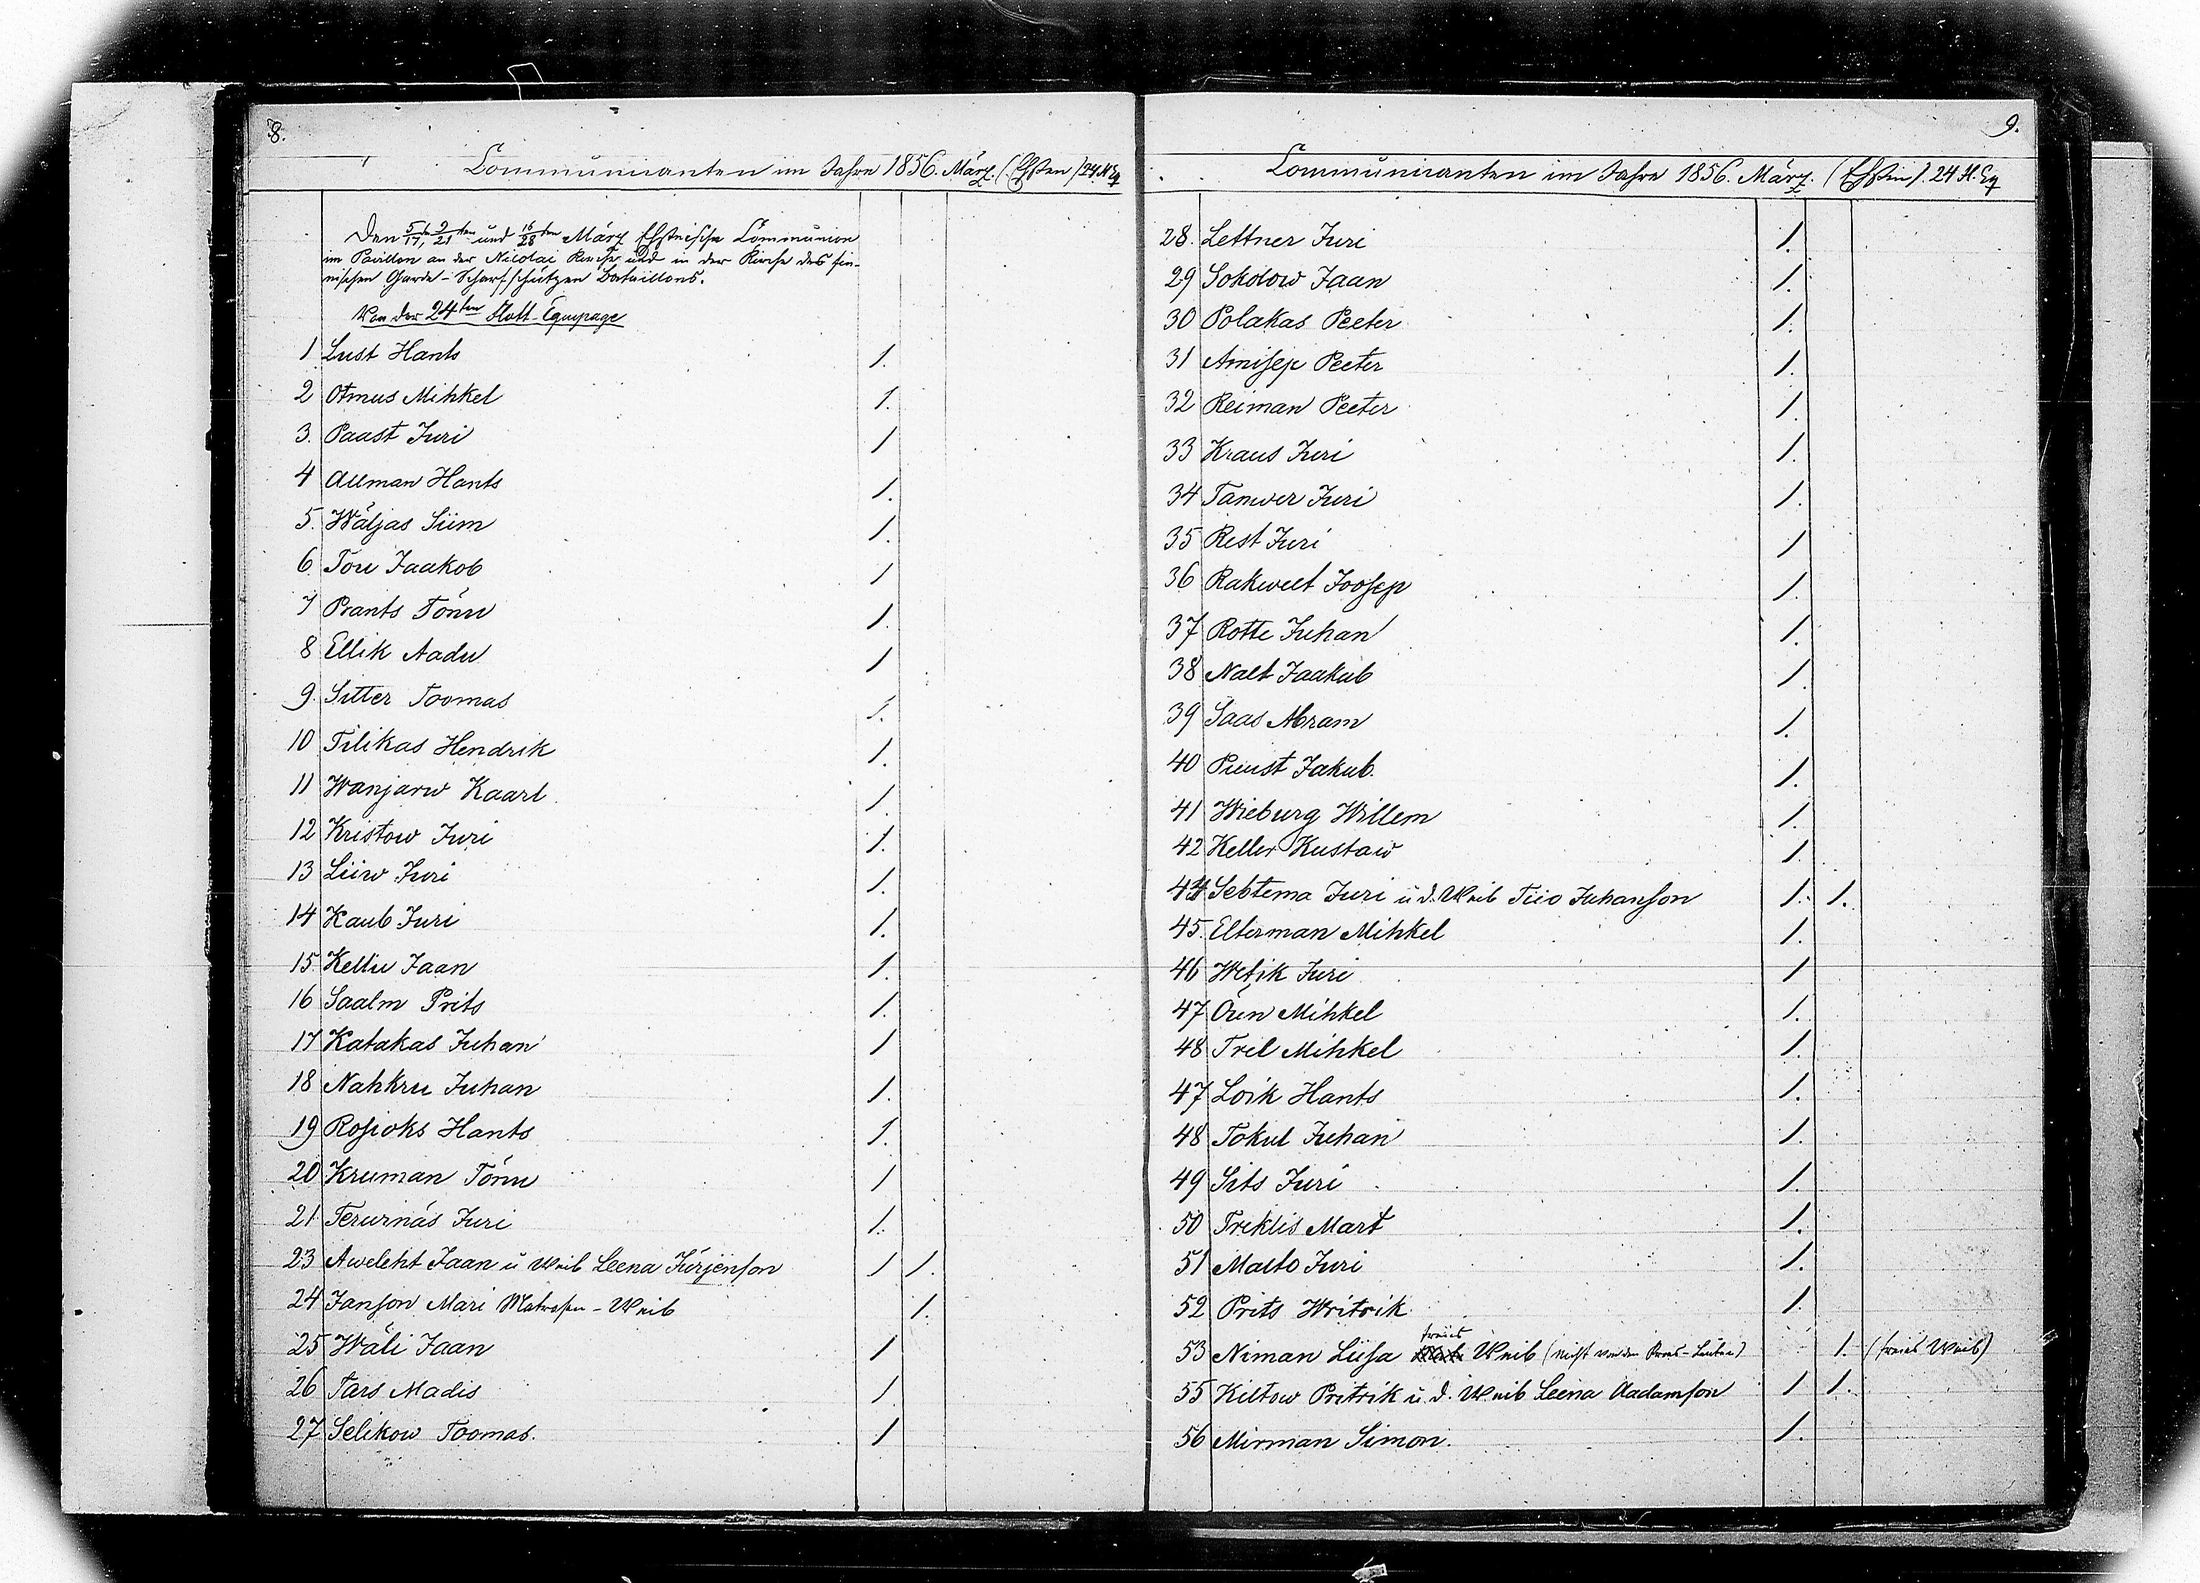 8.
Communicanten im Jahre 1856. März. (Ehsten) 24. Fl. Eq
Den 5/17ten, 9/21ten und 16/28ten März Ehstnische Communion
im Pavillon an der Nicolai Kirche und in der Kirche des fin-
nischen Garde-Scharfschützen Bataillons.
Von der 24ten Flott-Equipage
1 Lust Hants 1.
2 Otmus Mihkel 1.
3. Paast Juri 1
4 Allman Hants 1.
5. Wäljas Siim 1.
6 Tou Jaakob 1
7 Prants Tõnu 1.
8 Ellik Aadu 1
9. Sitter Toomas 1.
10 Tilikas Hendrik 1.
11 Wanjarw Kaarl 1.
12 Kristow Juri 1.
13 Liiw Juri 1.
14 Kaub Juri 1.
15 Kellu Jaan 1.
16 Saalm Prits 1.
17 Katakas Juhan 1
18 Nahkru Juhan 1.
19 Rosioks Hants 1.
20 Kruman Tõnu 1
21 Terwinäs Juri 1.
23 Aweleht Jaan u Weib Leena Jürjenson 1 1.
24 Janson Mari Matrosen-Weib 1.
25 Wäli Jaan 1
26 Tars Madis 1.
27 Selikow Toomas. 1
9.
Communicanten im Jahre 1856. März. (Ehsten). 24 Fl. Eq
28. Lettner Juri 1.
29 Sokolow Jaan 1.
30 Polakas Peeter 1.
31 Amisep Peeter 1.
32 Reiman Peeter 1.
33 Kraus Juri 1.
34 Tamwer Juri 1.
35 Rest Juri 1
36 Rakwelt Joosep 1.
37 Rotte Juhan 1.
38 Nalt Jaakub 1.
39 Saas Abram 1.
40 Puust Jakub. 1.
41 Wieburg Willem 1.
42 Keller Kustaw 1.
44 Sebtema Juri u d. Weib Tiio Juhanson 1. 1.
45. Elterman Mihkel 1.
46 Wetik Juri 1
47 Õun Mihkel 1.
48 Trel Mihkel 1.
47 Loik Hants 1.
48 Tokul Juhan 1.
49 Sits Juri 1.
50 Triklis Mart 1.
51 Malto Juri 1.
52 Prits Writrik 1.
freies
53 Niman Liisa Weib (nicht von den Krons-Leuten) 1. (freies Weib)
55 Kiltow Pritrik u. d. Weib Leena Aadamson 1 1.
56 Mirman Simon. 1.